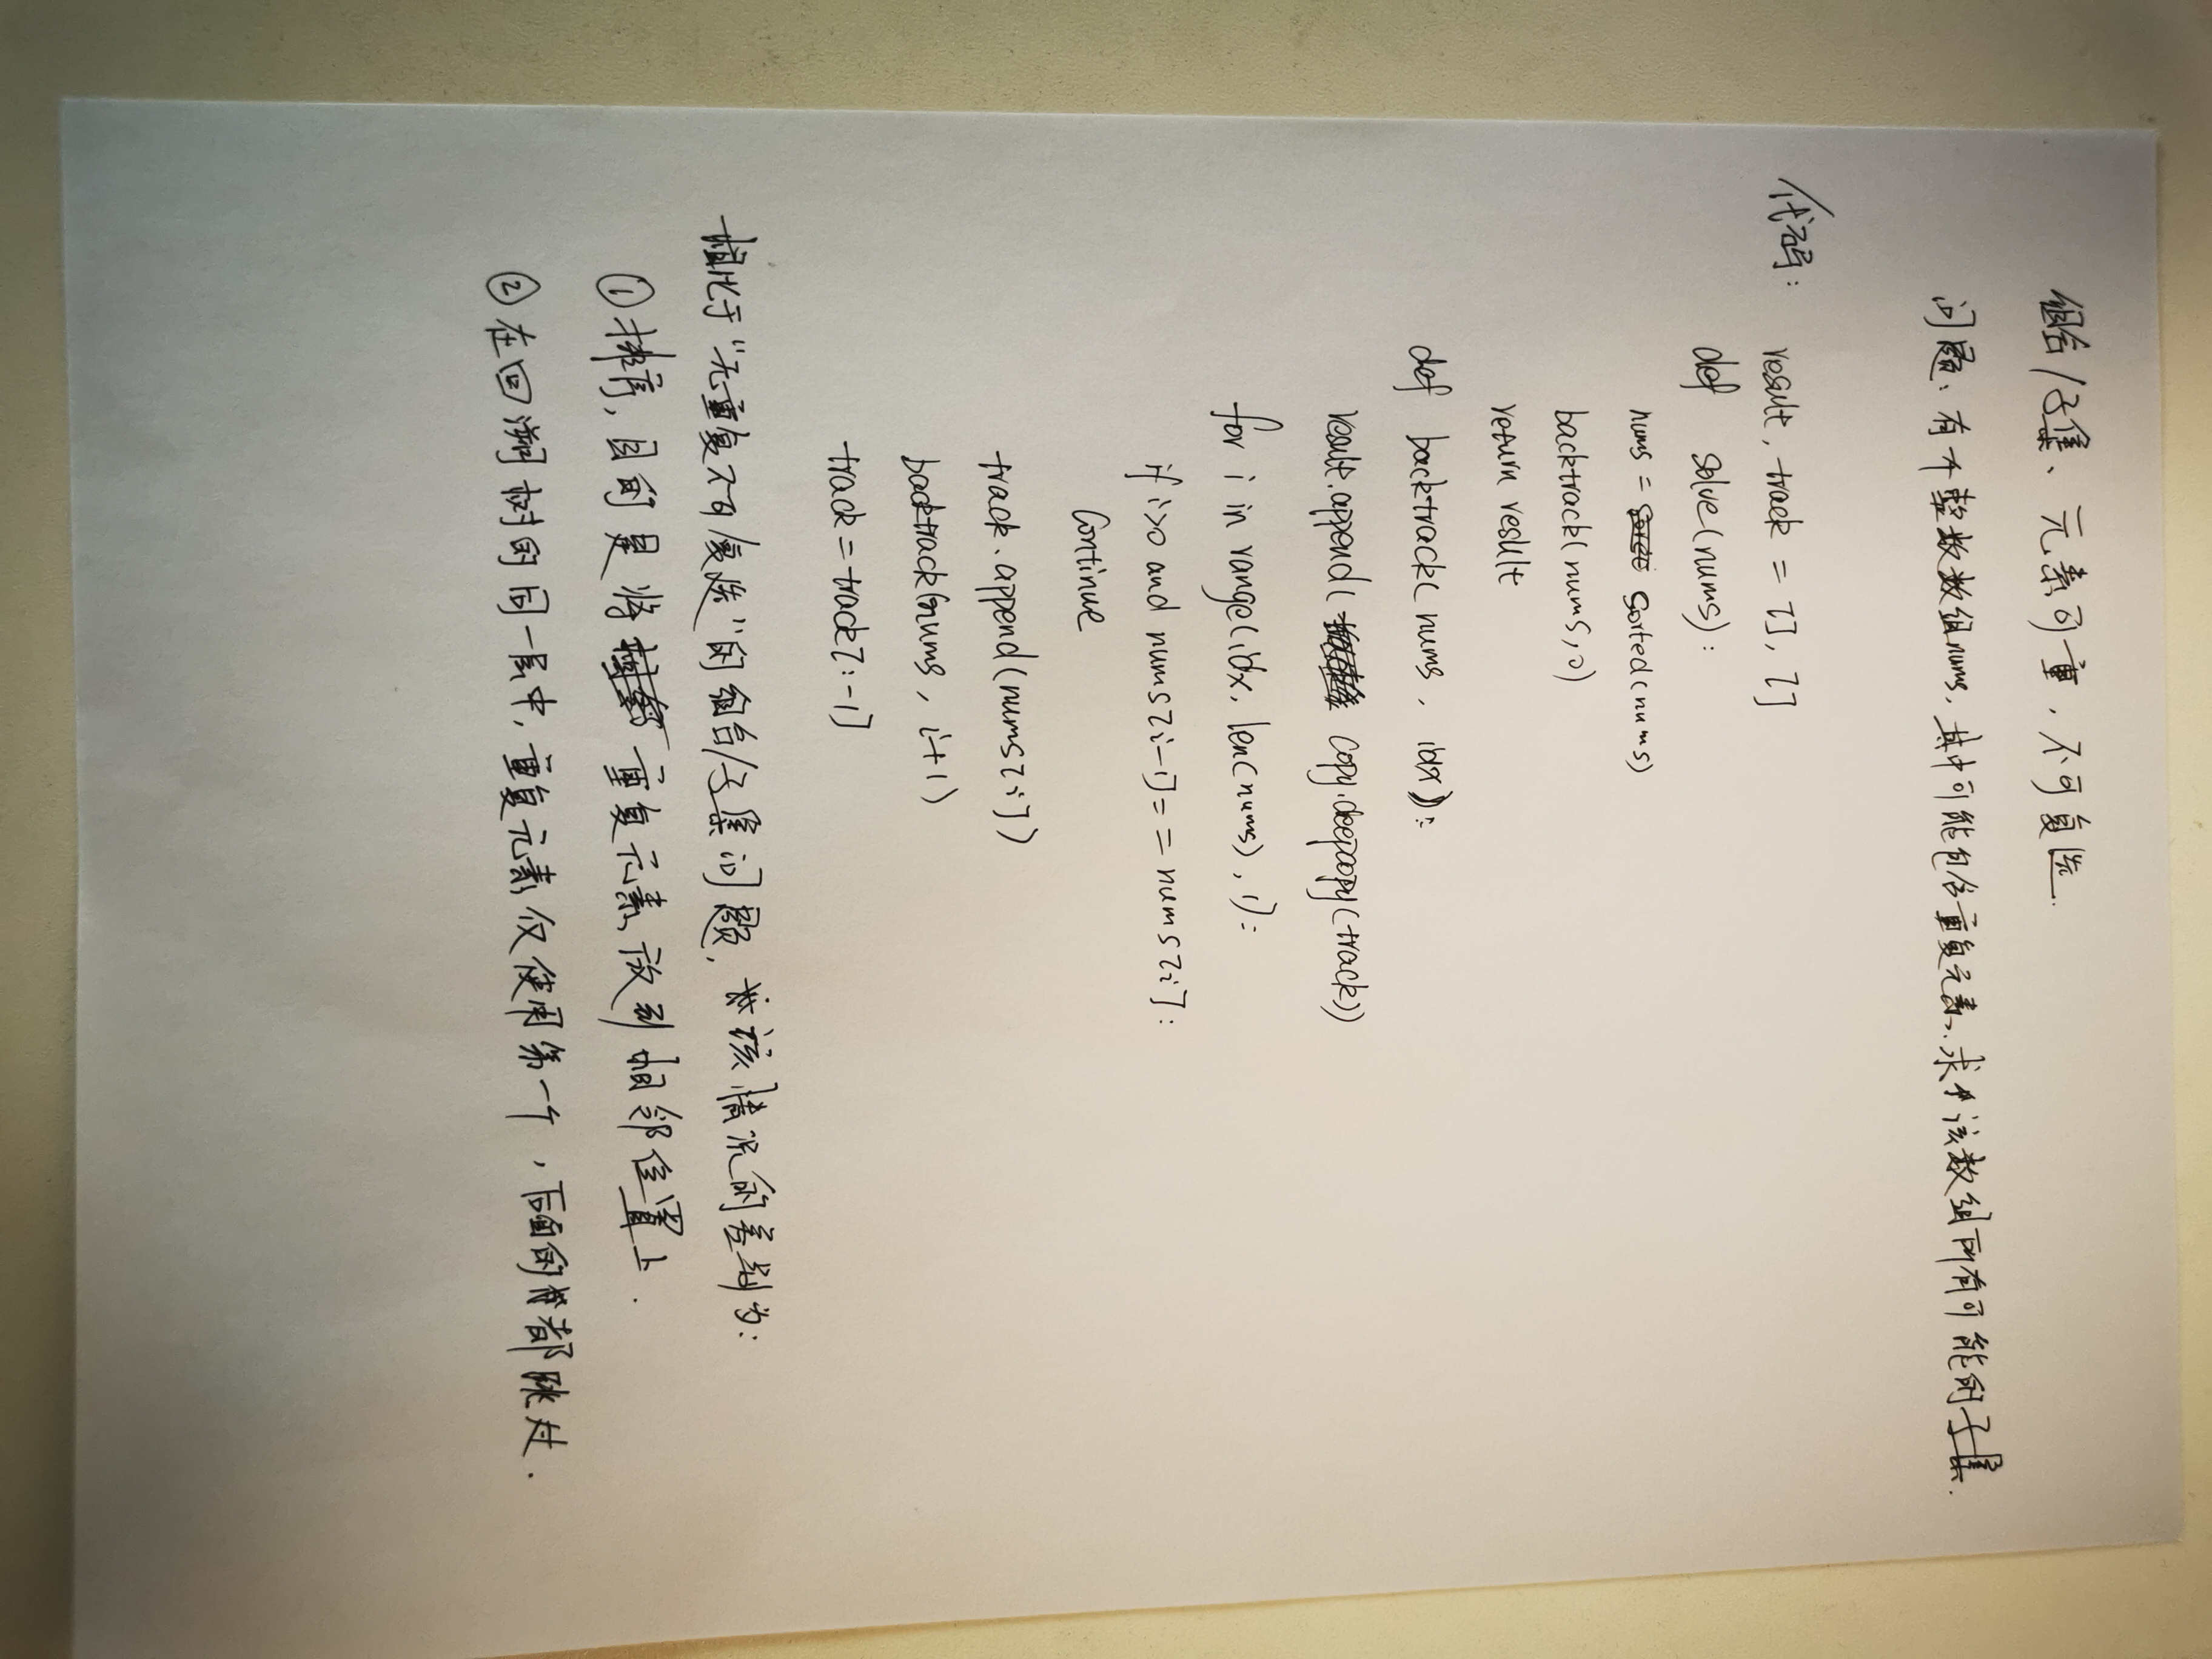 组合/子集、元素可重,不可复选.
问题:有个整数数组nums,其中可能包含重复元素.求该数组所有可能的子集.
代码: result, track = [], []
def solve(nums):
nums = sorted(nums)
backtrack(nums,0)
return result
def backtrack(nums, idx):
result.append( copy.deepcopy(track))
for i in range(idx, len(nums), 1):
if i>0 and nums[i-1]==nums[i]:
Continue
track.append(nums[i])
backtrack(nums, i+1)
track=track[:-1]
相比于"无重复不可复选"的组合/子集问题,该情况的差别为:
①排序,目的是将重复元素放到相邻位置上.
②在回溯树的同一层中,重复元素仅使用第一个,后面的都跳过.